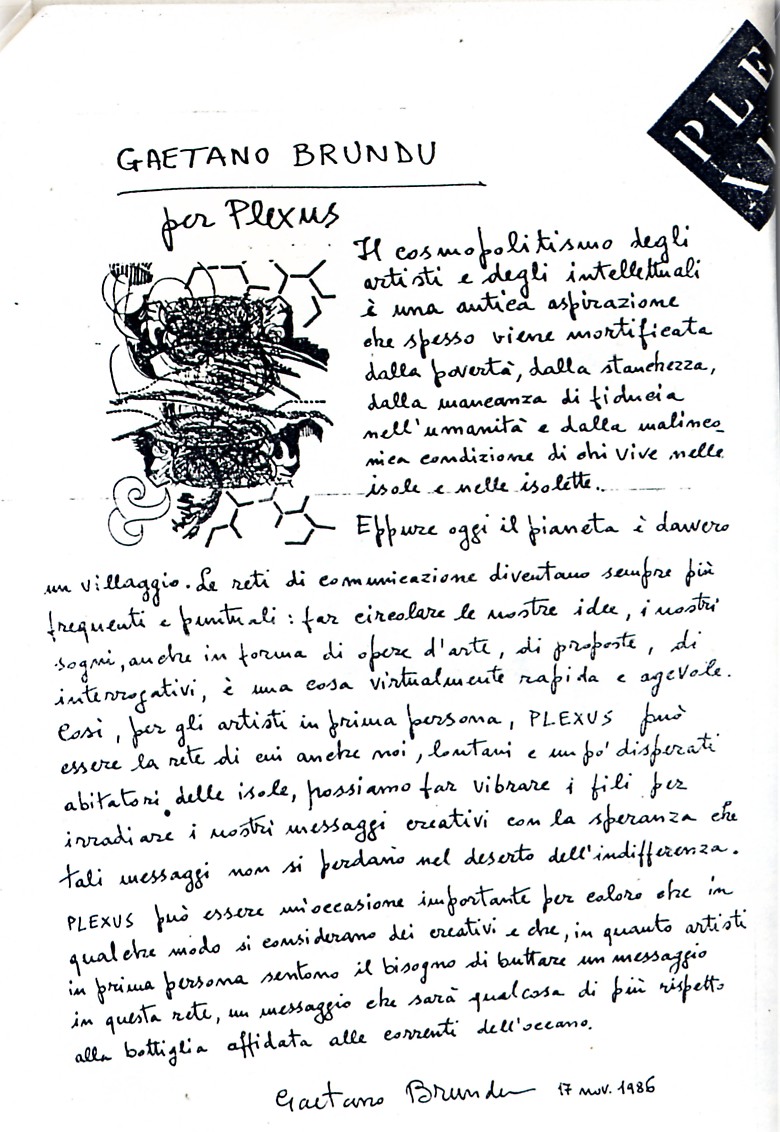 PLE
XU
GAETANO BRUNDU
per Plexus
Il cosmopolitismo degli
artisti e degli intellettuali
è una antica aspirazione
che spesso viene mortificata
dalla povertà, dalla stanchezza,
dalla mancanza di fiducia
nell'umanità e dalla malinco_
nica condizione di chi vive nelle
isole e nelle isolette.
Eppure oggi il pianeta è davvero
un villaggio. Le reti di comunicazione diventano sempre più
frequenti e puntuali: far circolare le nostre idee, i nostri
sogni, anche in forma di opere d'arte, di proposte, di
interrogativi, è una cosa virtualmente rapida e agevole.
Così, per gli artisti in prima persona, PLEXUS può
essere la rete di cui anche noi, lontani e un po' disperati
abitatori delle isole, possiamo far vibrare i fili per
irradiare i nostri messaggi creativi con la speranza che
tali messaggi non si perdano nel deserto dell'indifferenza.
PLEXUS può essere un'occasione importante per coloro che in
qualche modo si considerano dei creativi e che, in quanto artisti
in prima persona sentono il bisogno di buttare un messaggio
in questa rete, un messaggio che sarà qualcosa di più rispetto
alla bottiglia affidata alle correnti dell'oceano.
Gaetano Brundu 17 nov. 1986